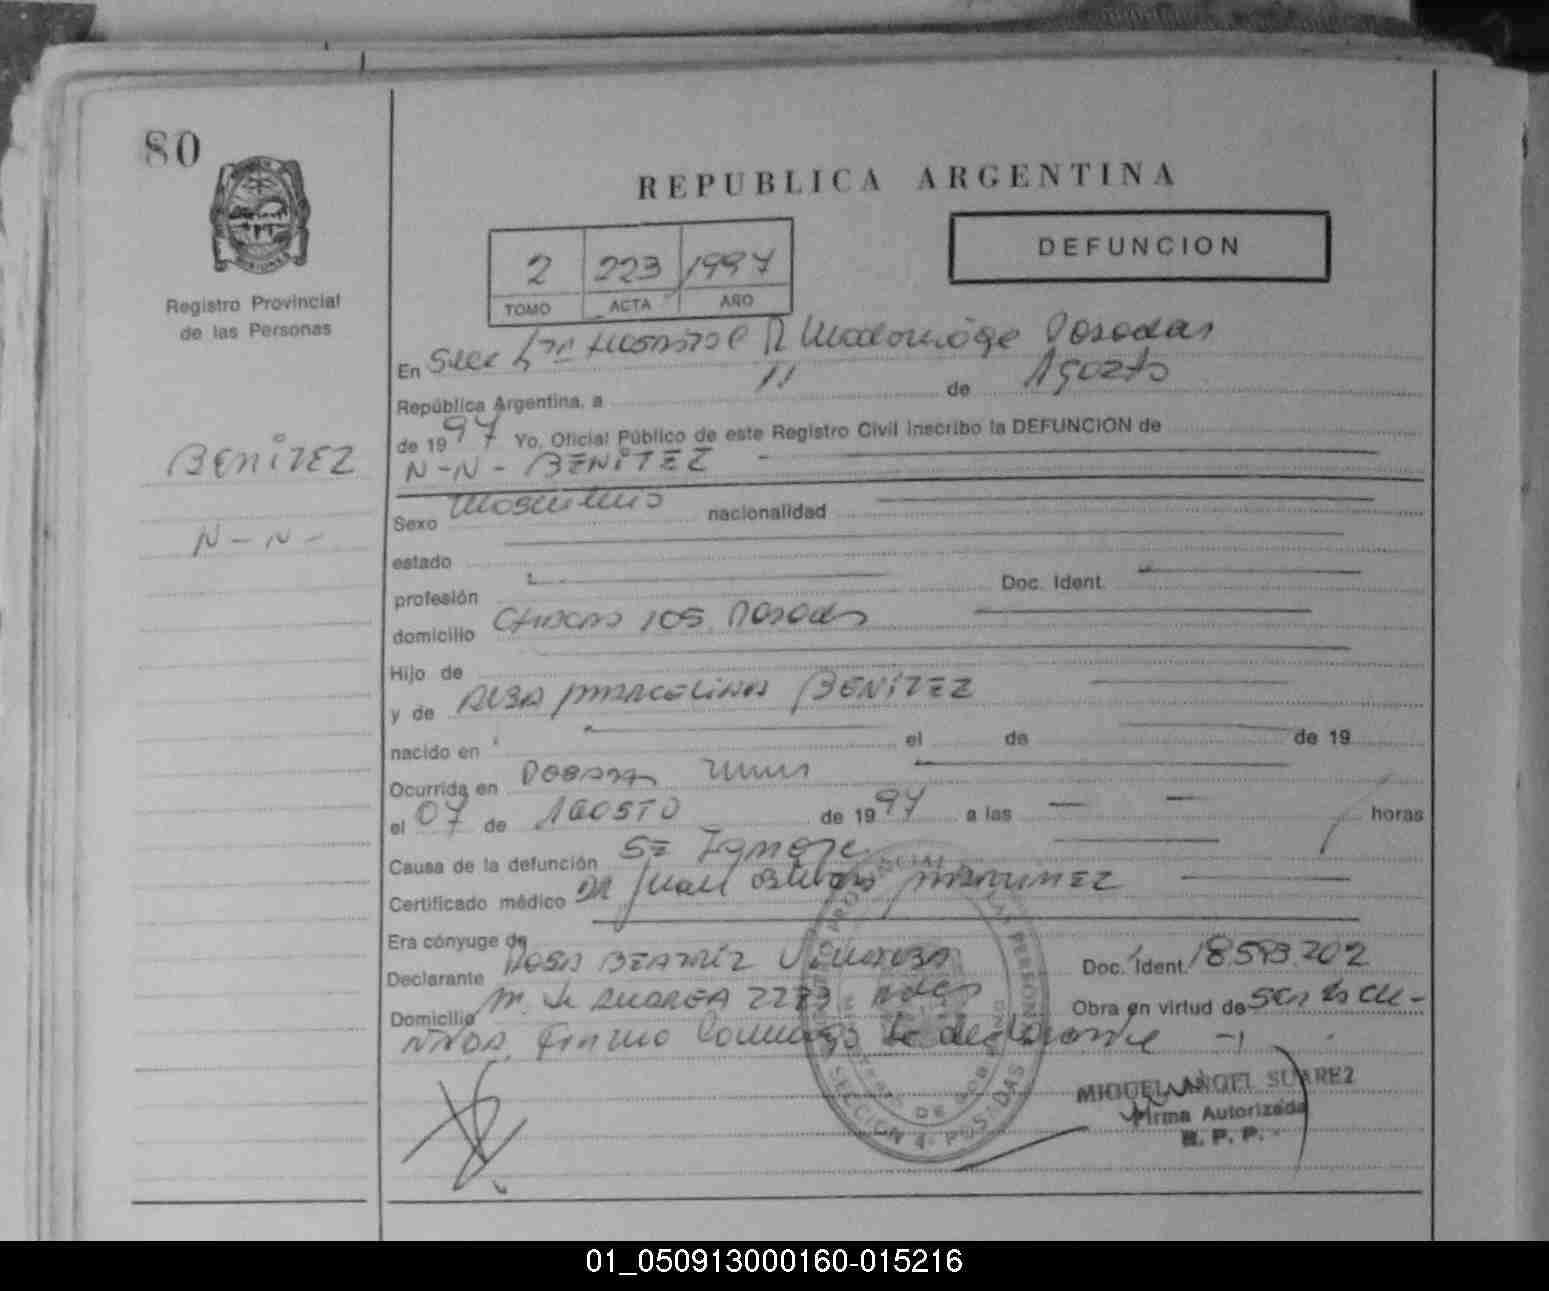 80
REPUBLICA ARGENTINA
DEFUNCION
2 223 1997
TOMO ACTA AÑO
Registro Provincial
de las Personas
En Secc 4ta Hospital R Madariaga Posadas
República Argentina, a 11 de Agosto
de 1997 Yo, Oficial Público de este Registro Civil inscribo la DEFUNCION de
BENITEZ
N-N- BENITEZ
N-N-
Sexo Masculino nacionalidad
estado
profesión Doc. Ident.
domicilio 105 Posadas
Hijo de
y de ALBA MARCELINA BENITEZ
nacido en el de de 19
Ocurrida en
el 07 de AGOSTO de 1997 a las horas
Causa de la defunción Se Ignora
Certificado médico DR Juan MARTINEZ
Era cónyuge de
Declarante ROSA BEATRIZ Doc. Ident. 18.593.202
Domicilio 2273 Obra en virtud de
la declarante
MIGUEL ANGEL SUAREZ
Firma Autorizada
R. P. P.
SECCION 4ª POSADAS
01_050913000160-015216